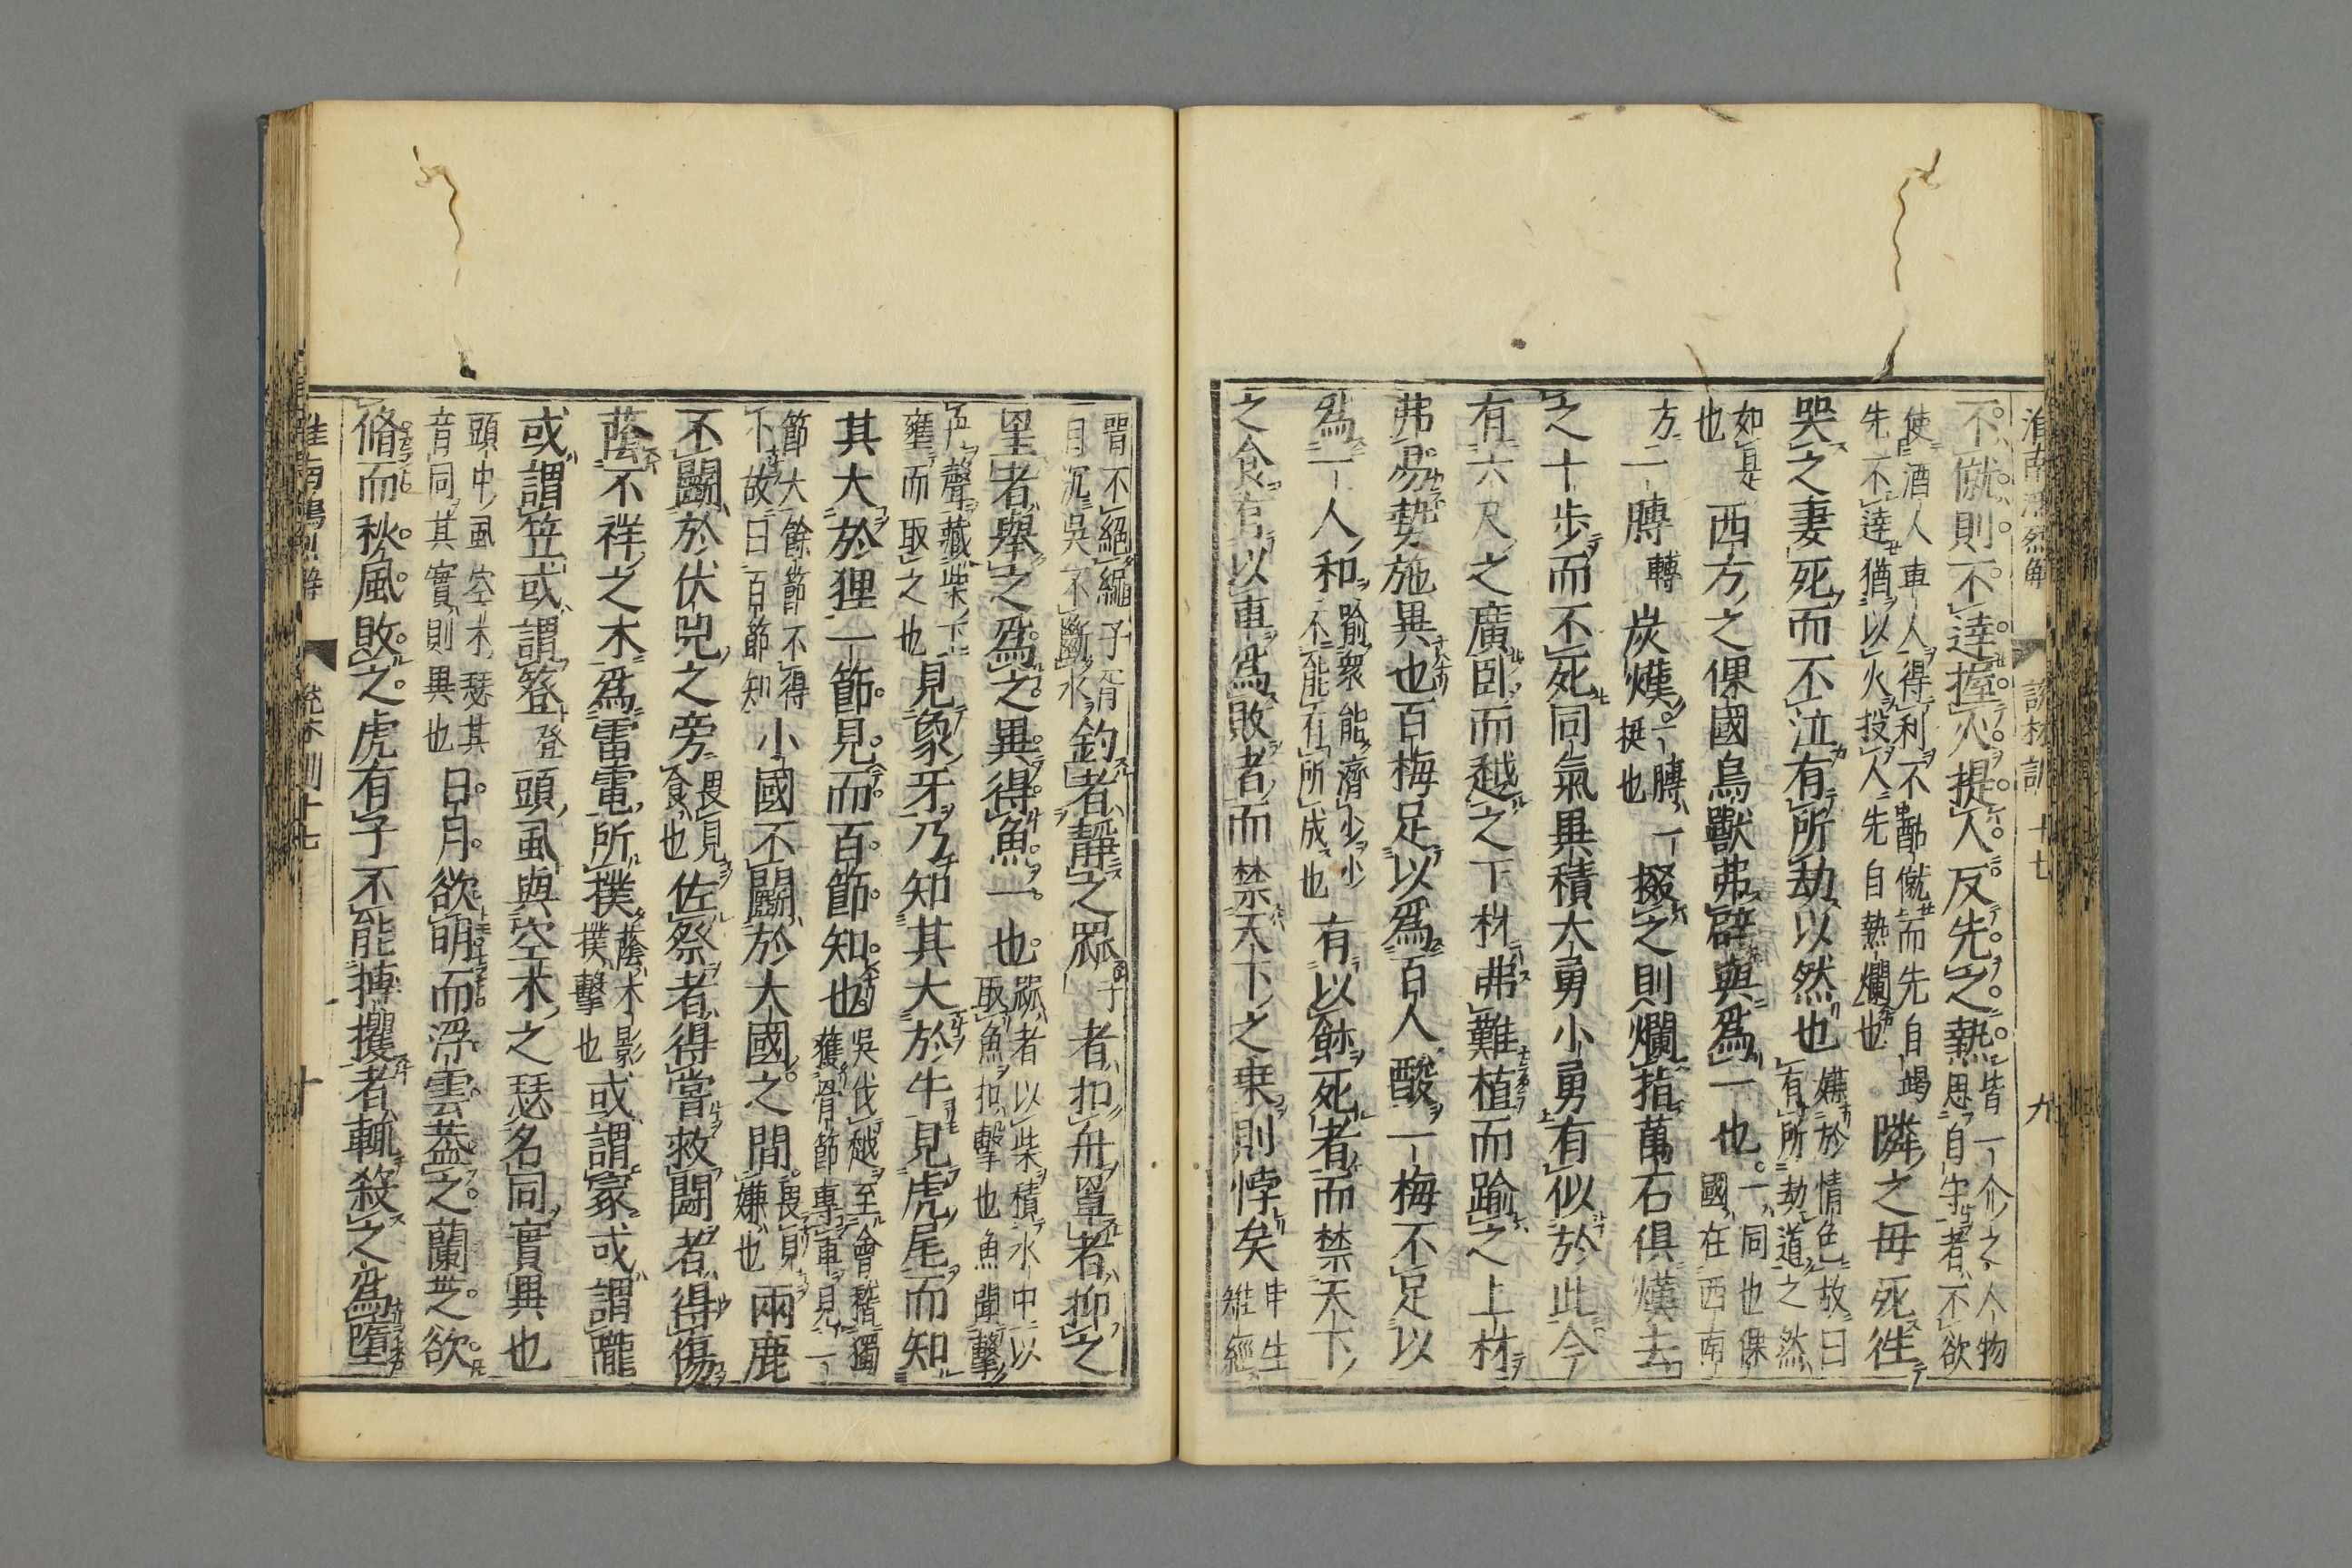 淮南鴻烈解 說林訓 十七 九
不僦則不達握火提人反先之熱
皆一介之人物
思自守者不欲
使酒人車人得利不酤僦而先自竭
先不達猶以火投人先自熱爛也
隣之母死徃
哭之妻死而不泣有所劫以然也
嫌於情色故曰
有所劫道之然
如是
也
西方之倮國鳥獸弗辟與爲一也
一同也倮
國在西南
方
一膞
轉
炭熯
一膞一
挺也
掇之則爛指萬石俱熯去
之十步而不死同氣異積大勇小勇有似於此今
有六尺之廣臥而越之下材弗難植而踰之上材
弗易勢施異也百梅足以爲百人酸一梅不足以
爲一人和
踰衆能濟少少
不能有所成也
有以飯死者而禁天下
之食有以車爲敗者而禁天下之乗則悖矣
申生
雉經
罟不絕緡子胥
目沉吳不斷水
釣者靜之罧者扣舟罩者抑之
罣者舉之爲之異得魚一也
罧者以柴積水中以
取魚扣擊也魚聞擊
舟聲藏柴下
壅而取之也
見象牙乃知其大於牛見虎尾而知
其大於狸一節見而百節知也
吳伐越至會稽獨
獲骨節專車見一
節大餘節不得
下故曰百節知
小國不鬭於大國之間
畏見
嫌也
兩鹿
不鬭於伏兕之旁
畏見
食也
佐祭者得嘗救鬭者得傷
蔭不祥之木爲雷電所撲
蔭木影
撲擊也
或謂冡或謂隴
或謂笠或謂簦
登
頭虱與空木之瑟名同實異也
頭中虱空木瑟其
音同其實則異也
日月欲明而浮雲蓋之蘭芝欲
脩而秋風敗之虎有子不能搏攫者輒殺之爲墮
淮南鴻烈解 說林訓十七 十